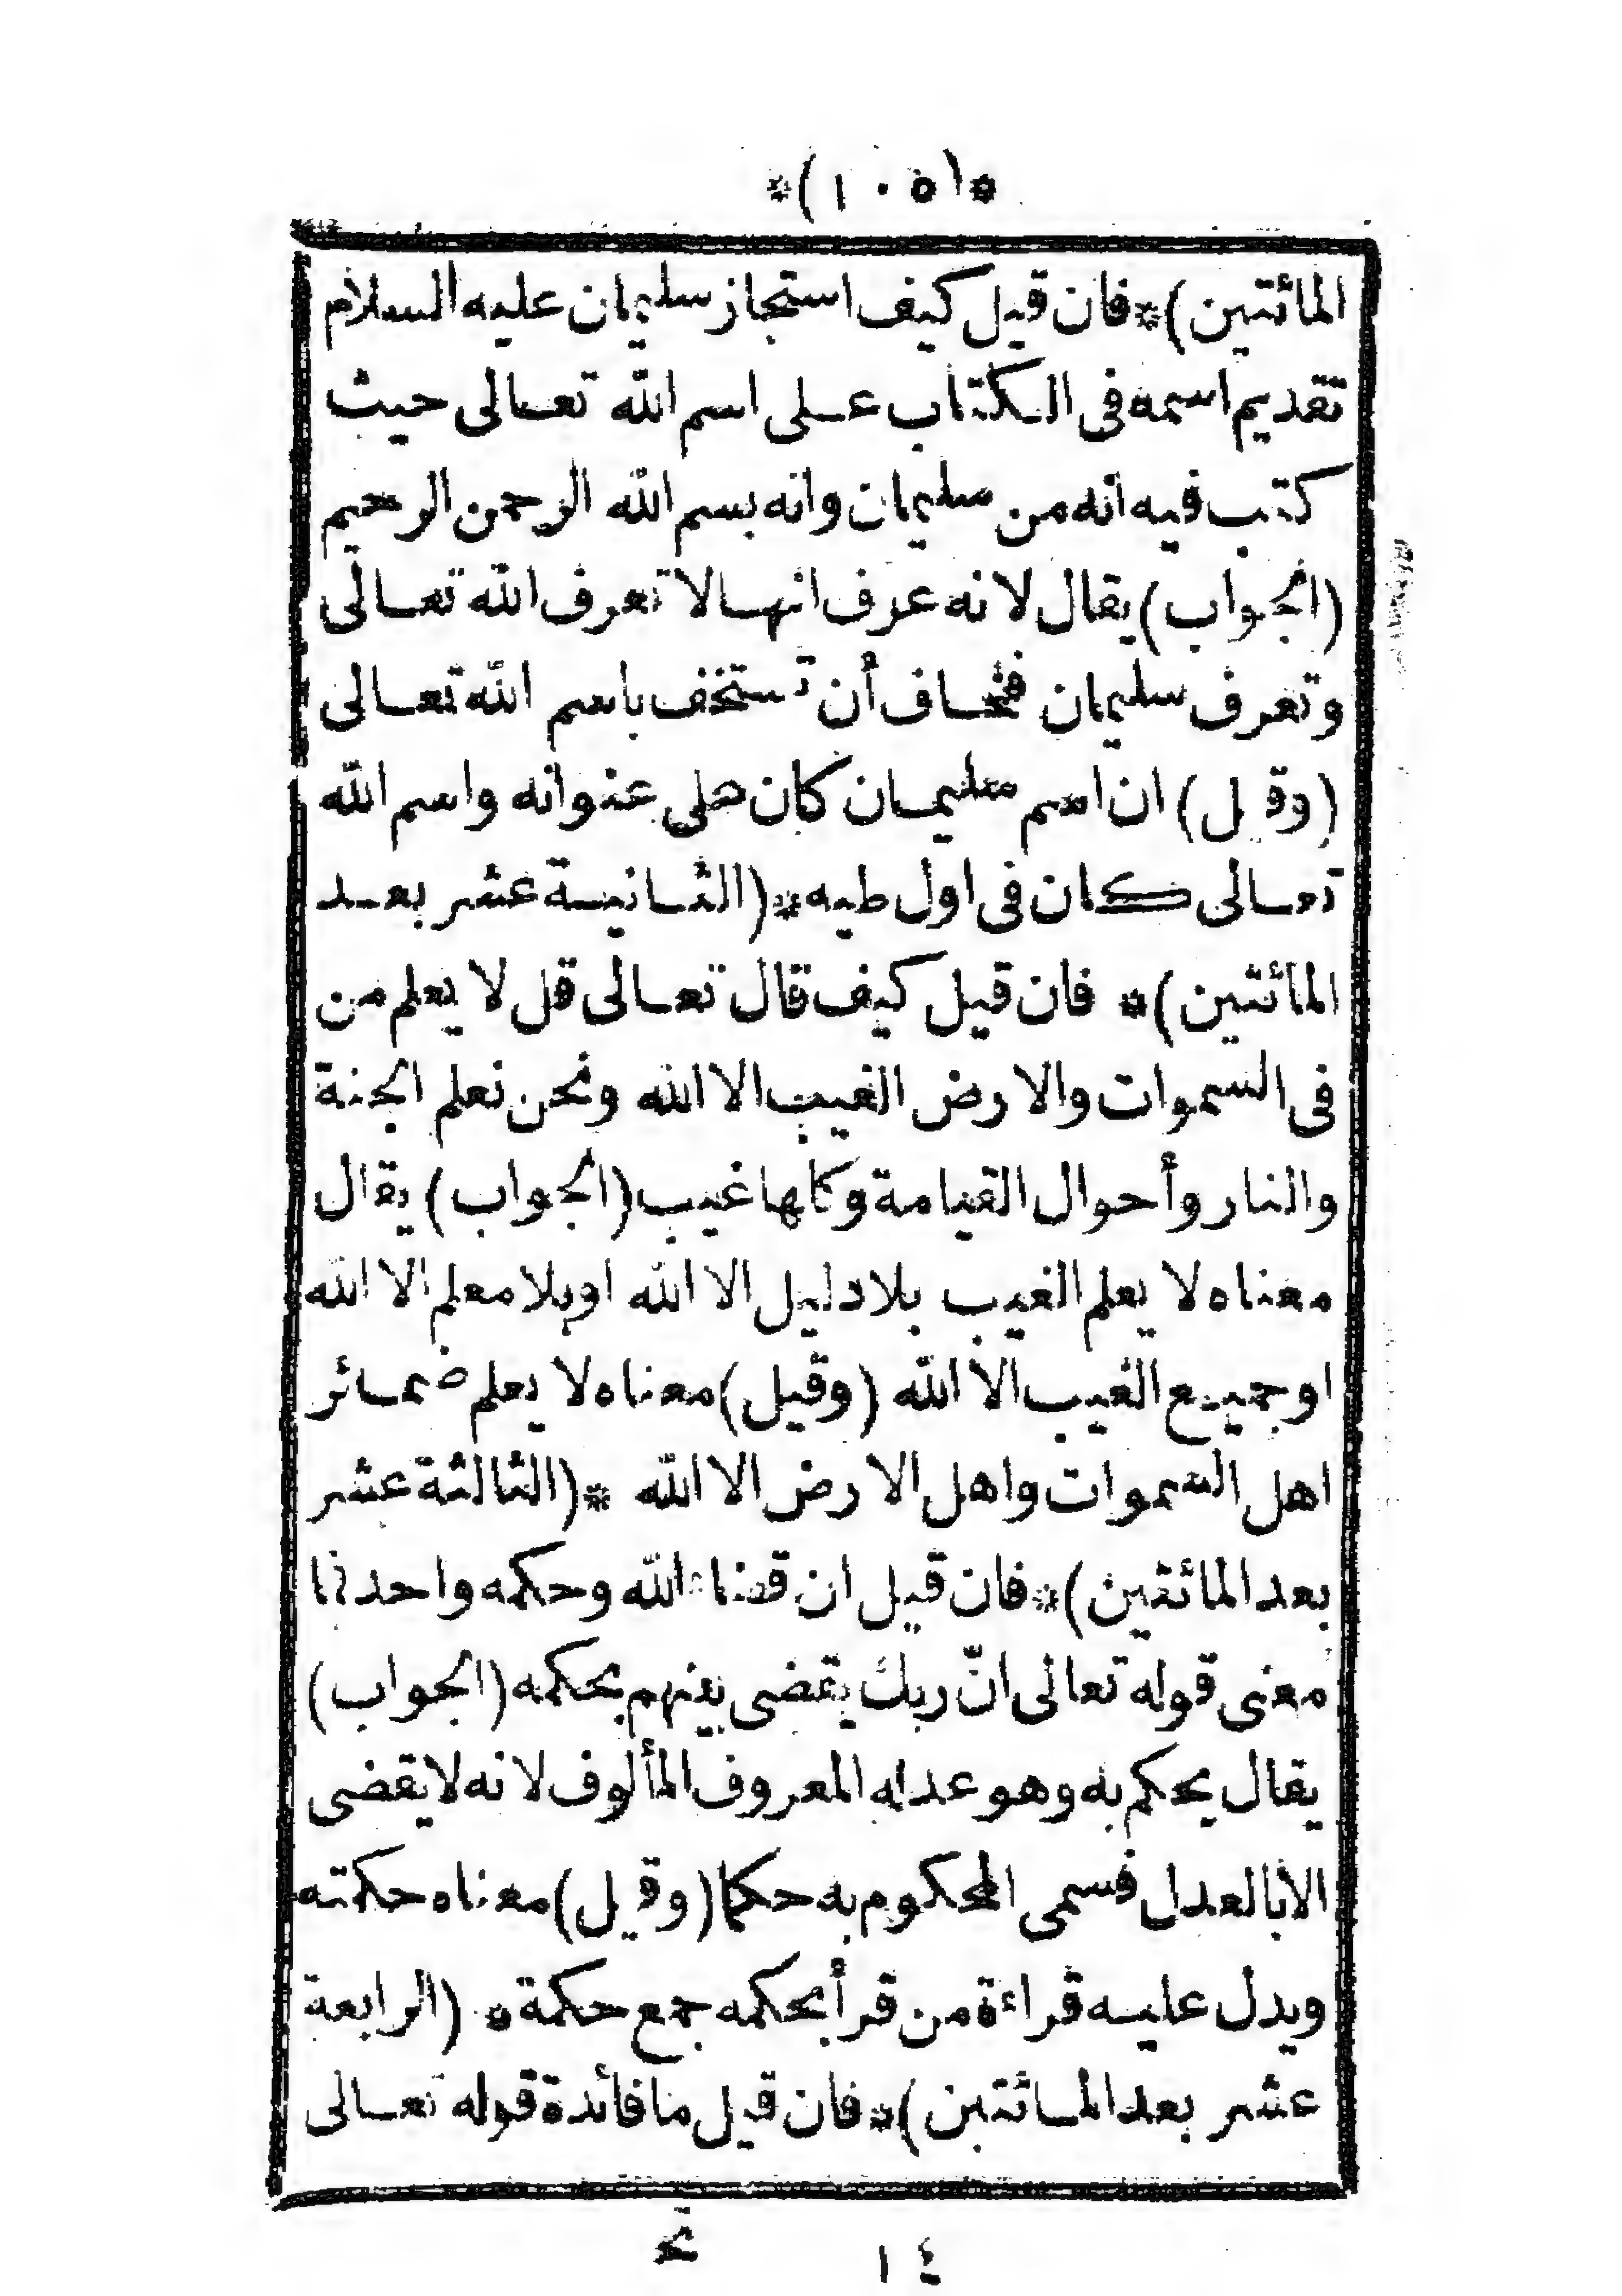 *(١٠٥)*
المائتين)*فان قيل كيف استجاز سليمان عليه السلام
تقديم اسمه فى الكتاب عـلى اسم الله تعـالى حيث
كتب فيه انه من سليمان وانه بسم الله الرحمن الرحيم
(الجواب) يقال لانه عرف انهـا لا تعرف الله تعـالى
وتعرف سليمان فخـاف أن تستخف باسم الله تعـالى
(وقيل) ان اسم سليمـان كان على عنوانه واسم الله
تعـالى كان فى اول طيه*(الثـانيـة عشر بعـد
المائتين)* فان قيـل كيف قال تعـالى قل لا يعلم من
فى السموات والارض الغيب الا الله ونحن نعلم الجنة
والنار وأحوال القيامة وكلها غيب (الجواب) يقال
معناه لا يعلم الغيب بلا دليل الا الله او بلا معلم الا الله
او جميـع الغيب الا الله (وقيل) معناه لا يعلم ضمـائر
اهل السموات واهل الارض الا الله *(الثالثة عشر
بعد المائتين)*فان قيل ان قضاء الله وحكمه واحد فما
معنى قوله تعالى انّ ربك يقضى بينهم بحكمه (الجواب)
يقال يحكم به وهو عدله المعروف المألوف لانه لا يقضى
الا بالعدل فسمى المحكوم به حكما (وقيل) معناه حكمته
ويدل عليـه قراءة من قرأ بحكمه جمع حكمة * (الرابعة
عشر بعد المـائتين)*فان قيـل ما فائدة قوله تعـالى
١٤